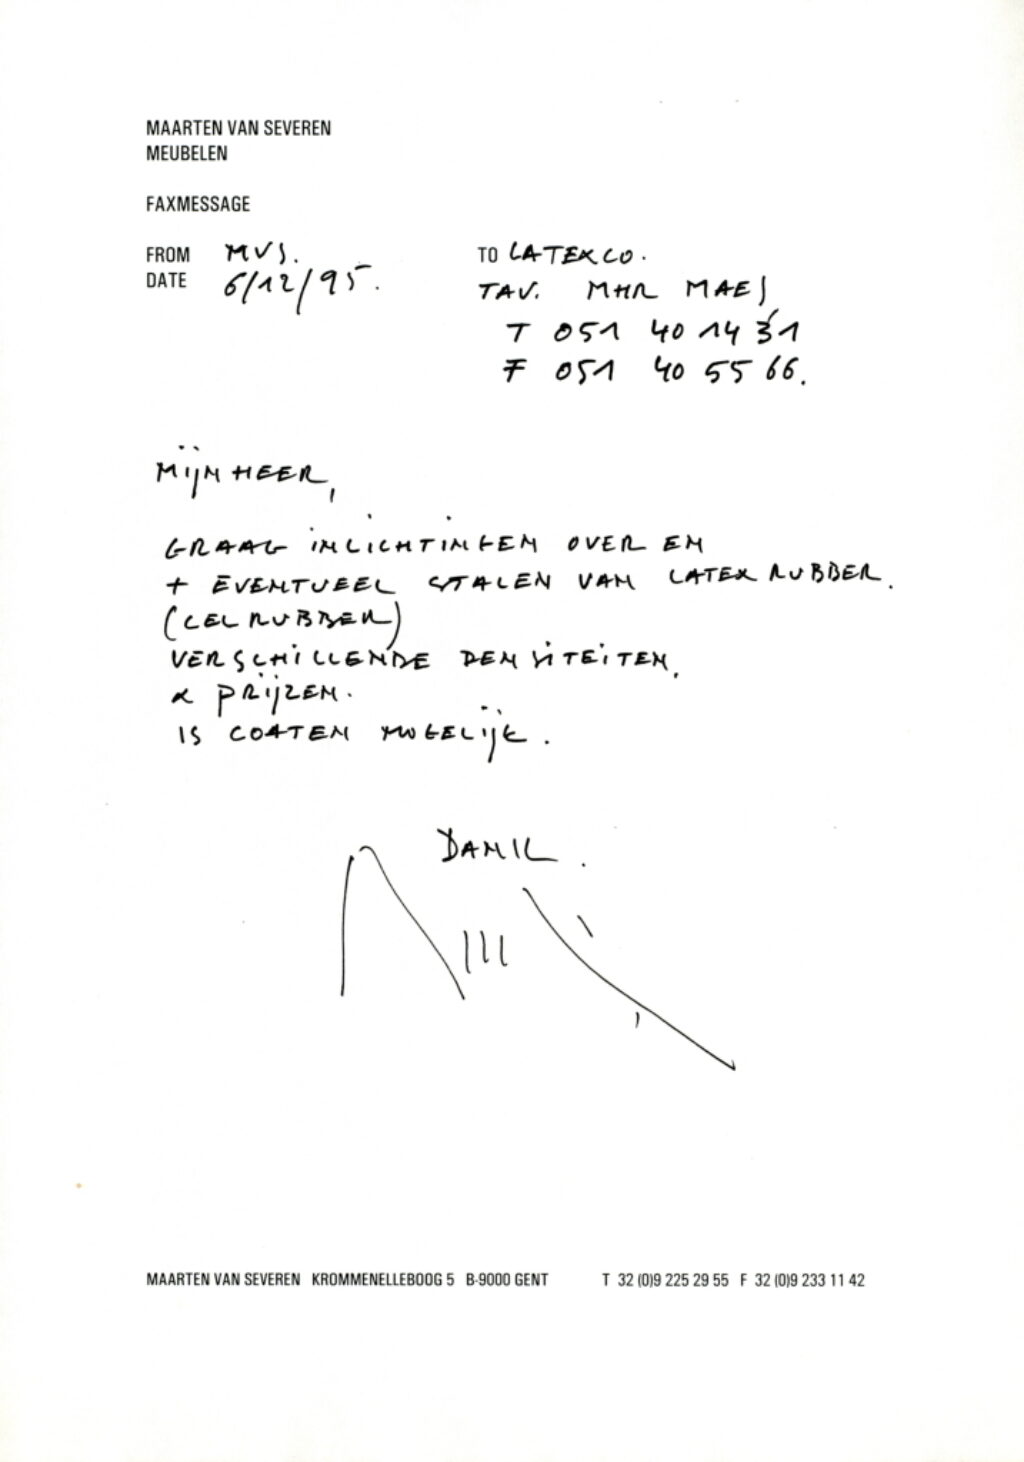 MAARTEN VAN SEVEREN
MEUBELEN
FAXMESSAGE
FROM MVS.
DATE 6/12/95.
TO LATEXCO.
TAV. MHR MAES
T 051 40 14 31
F 051 40 55 66.
MIJNHEER,
GRAAG INLICHTINGEN OVER EN
+ EVENTUEEL STALEN VAN LATEX RUBBER.
(CELRUBBER)
VERSCHILLENDE DENSITEITEN.
& PRIJZEN.
IS COATEN MOGELIJK.
DANK.
MAARTEN VAN SEVEREN KROMMENELLEBOOG 5 B-9000 GENT T 32 (0)9 225 29 55 F 32 (0)9 233 11 42